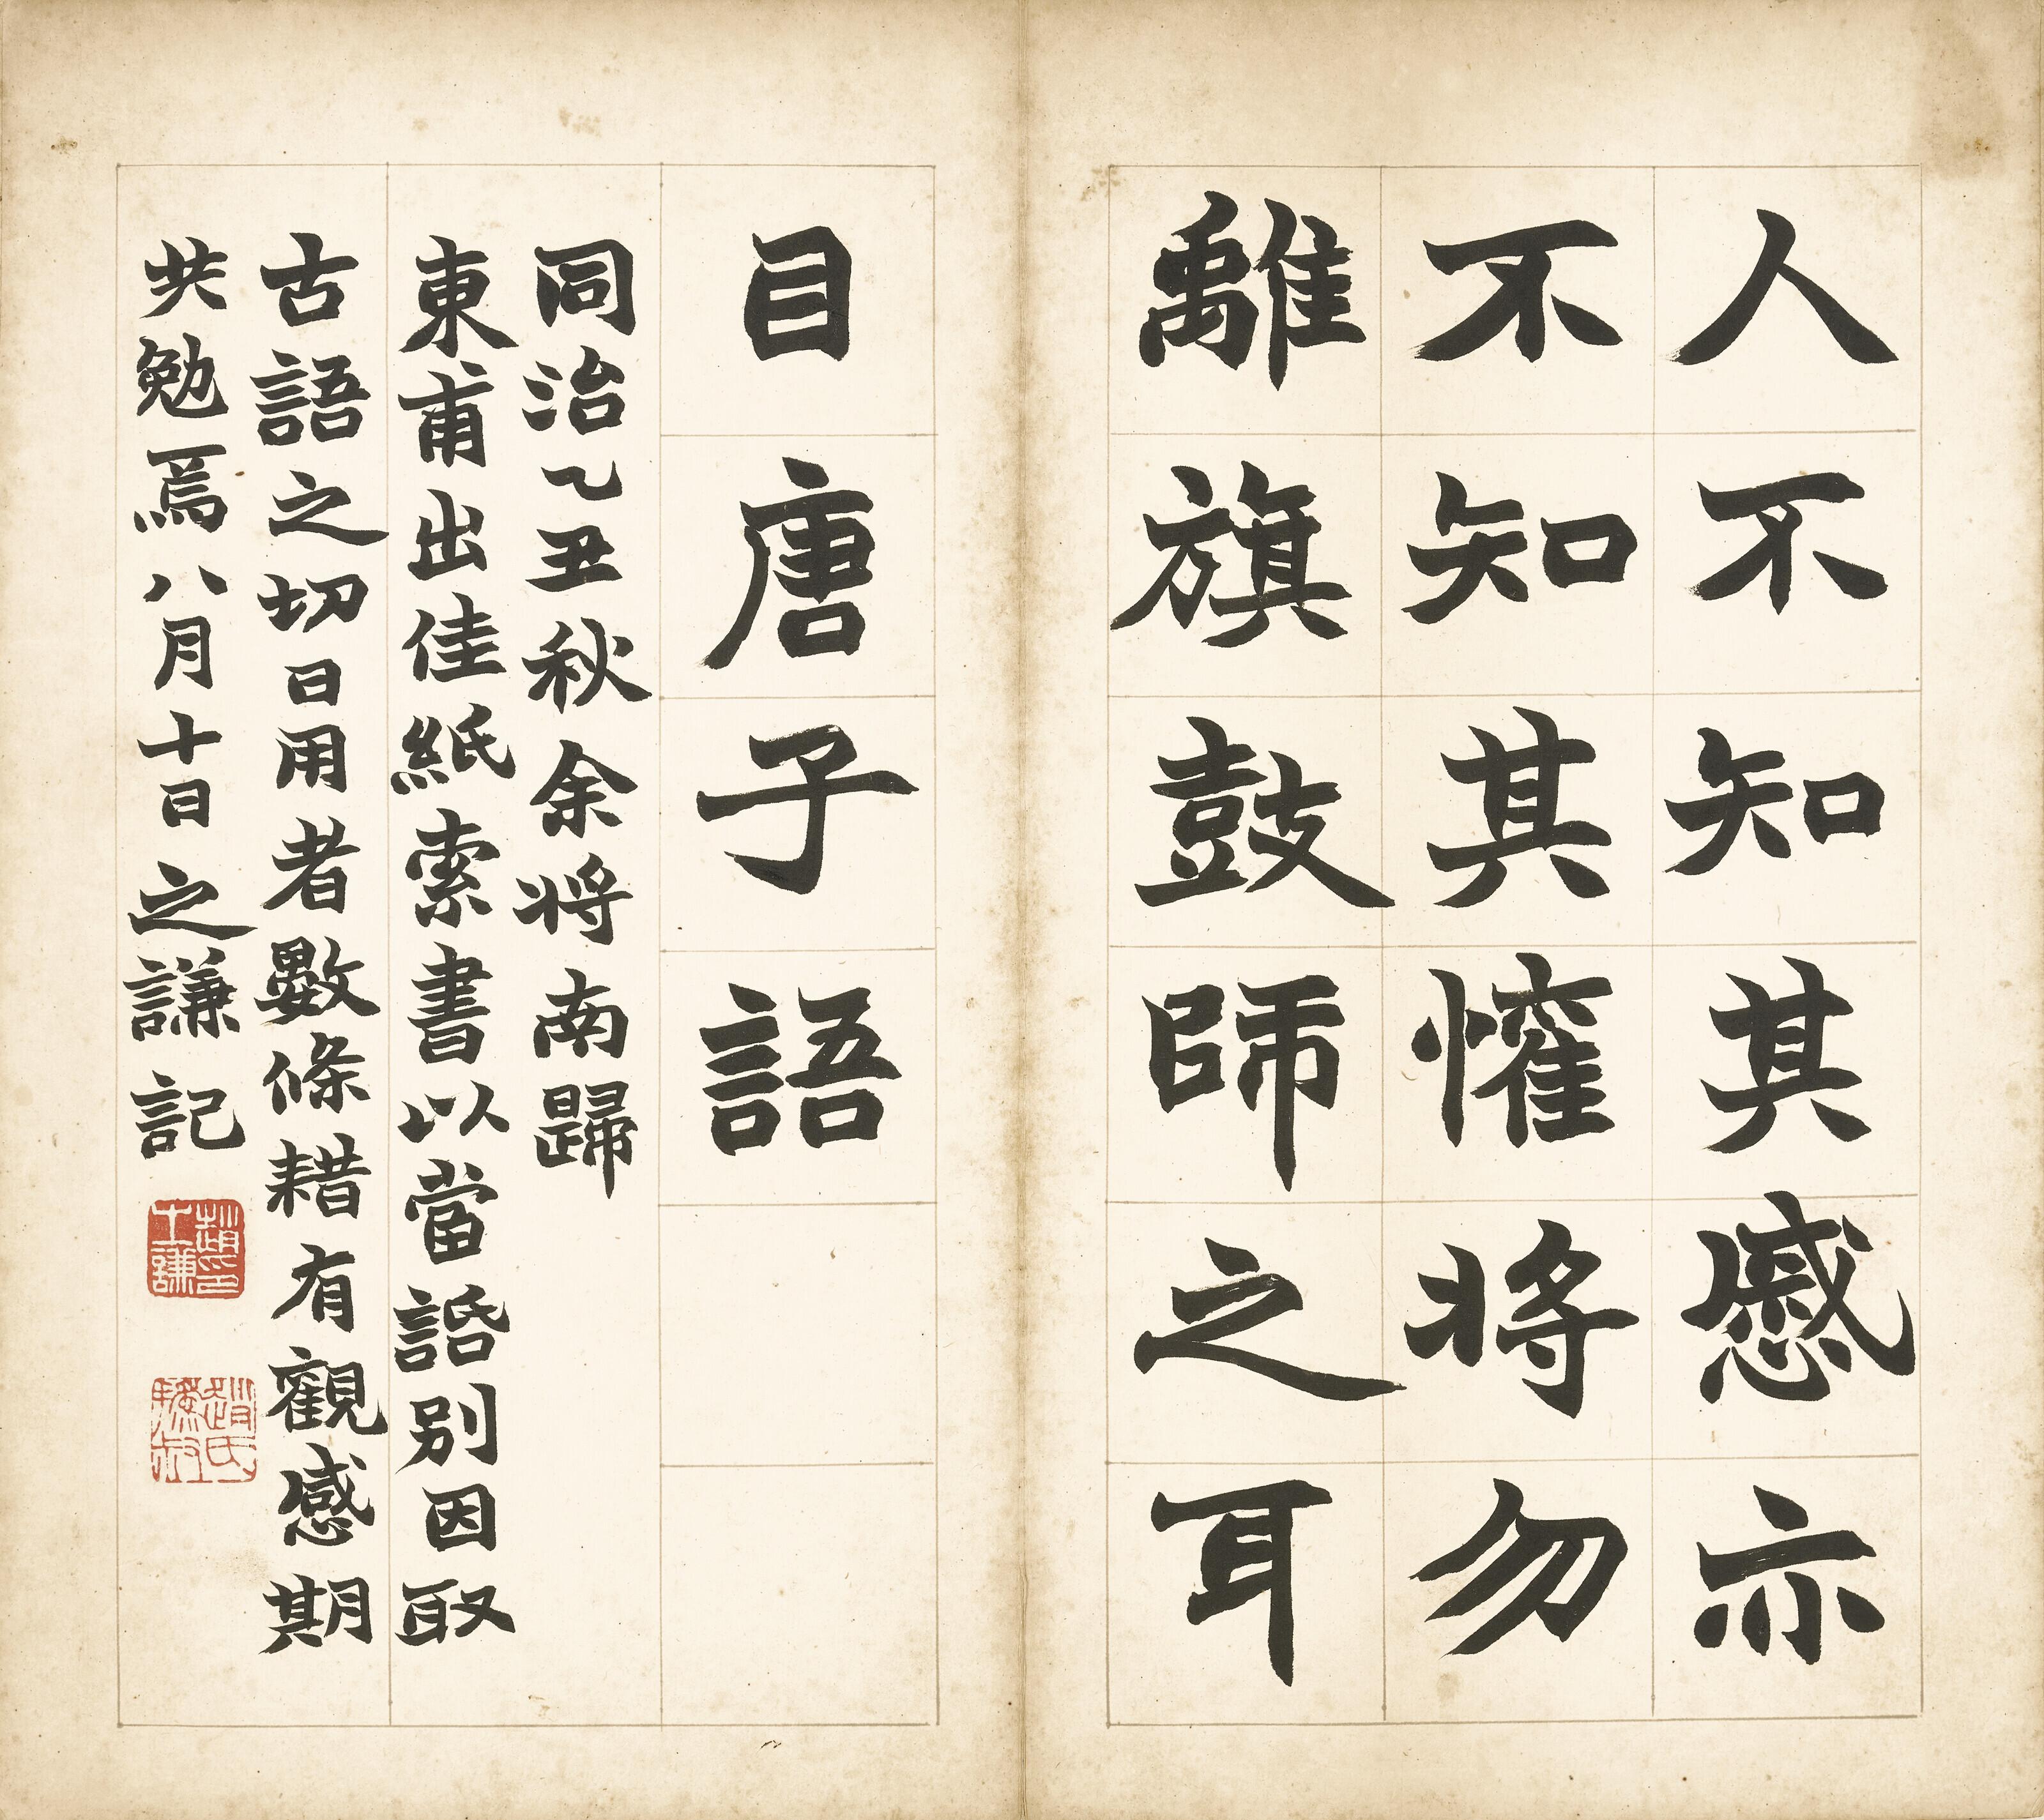 人不知其慼亦
不知其懽將勿
離旗鼓師之耳
目唐子語
同治乙丑秋余將南歸
東甫出佳紙索書以當話别因取
古語之切日用者數條耤有觀感期
共勉焉八月十日之謙記
趙印之謙
趙氏撝叔